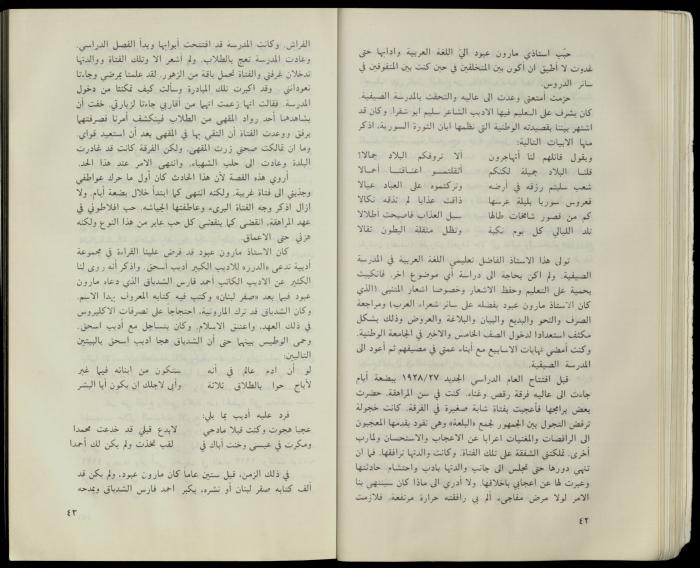 حبّب استاذي مارون عبود اليّ اللغة العربية وادابها حتى
غدوت لا أطيق ان أكون بين المتخلفين في حين كنت بين المتفوقين في
سائر الدروس.
حزمت أمتعتي وعدت الى عاليه والتحقت بالمدرسة الصيفية.
كان يشرف على التعليم فيها الاديب الشاعر سليم ابو شقرا. وكان قد
اشتهر بيننا بقصيدته الوطنية التي نظمها ابان الثورة السورية، اذكر
منها الابيات التالية:
ويقول قائلهم لنا أتهاجرون ألا تروقكم البلاد جمالا؟
قلنا البلاد جميلة لكنكم أثقلتمـــو اعنـاقنـــا أحمـالا
شعب سليتم رزقه في أرضه وتركتموه على العباد عيالا
فعروس سوريا بليلة عرسها ذاقت عذابا لم تذقه نكالا
كم من قصور شامخات طالها سيل العذاب فاصبحت أطلالا
تلد الليالي كل يوم نكبة وتظل مثقلة البطون ثقالا
تولى هذا الاستاذ الفاضل تعليمي اللغة العربية في المدرسة
الصيفية. ولم اكن بحاجة الى دراسة أي موضوع اخر. فانكببت
بحمية على التعليم وحفظ الاشعار وخصوصا اشعار المتنبي (الذي
كان الاستاذ مارون عبود يفضله على سائر شعراء العرب) ومراجعة
الصرف والنحو والبديع والبيان والبلاغة والعروض وذلك بشكل
مكثف استعدادا لدخول الصف الخامس والاخير في الجامعة الوطنية.
وكنت أمضي نهايات الاسابيع مع أبناء عمتي في مصيفهم ثم أعود الى
المدرسة الصيفية.
قبل افتتاح العام الدراسي الجديد ١٩٢٨/٢٧ ببضعة أيام
جاءت الى عاليه فرقة رقص وغناء. كنت في سن المراهقة. حضرت
بعض برامجها فأعجبت بفتاة شابة صغيرة في الفرقة. كانت خجولة
ترفض التجول بين الجمهور لجمع «البلعة» وهي نقود يقدمها المعجبون
الى الراقصات والمغنيات اعرابا عن الاعجاب والاستحسان ولمارب
أخرى. تملكتني الشفقة على تلك الفتاة. وكانت والدتها ترافقها. فما ان
تنهي دورها حتى تجلس الى جانب والدتها بادب واحتشام. حادثتها
وعبرت لها عن اعجابي باخلاقها. ولا أدري الى ماذا كان سينتهي بنا
الامر لولا مرض مفاجىء ألم بي رافقته حرارة مرتفعة. فلازمت
٤٢
الفراش. وكانت المدرسة قد افتتحت أبوابها وبدأ الفصل الدراسي.
وعادت المدرسة تعج بالطلاب. ولم اشعر الا وتلك الفتاة ووالدتها
تدخلان غرفتي والفتاة تحمل باقة من الزهور. لقد علمتا بمرضي وجاءتا
تعودانني. وقد اكبرت تلك المبادرة وسألت كيف تمكنتا من دخول
المدرسة. فقالتا انهما زعمتا انهما من أقاربي جاءتا لزيارتي. خفت أن
يشاهدهما أحد رواد المقهى من الطلاب فينكشف أمرنا فصرفتهما
برفق ووعدت الفتاة أن التقي بها في المقهى بعد أن أستعيد قواي.
وما ان تمالكت صحتي زرت المقهى. ولكن الفرقة كانت قد غادرت
البلدة وعادت الى حلب الشهباء. وانتهى الامر عند هذا الحد.
أروي هذه القصة لأن هذا الحادث كان أول ما حرك عواطفي
وجذبني الى فتاة غريبة. ولكنه انتهى كما ابتدأ خلال بضعة أيام. ولا
ازال اذكر وجه الفتاة البريء وعاطفتها الجياشه. حب افلاطوني في
عهد المراهقة، انقضى كما ينقضي كل حب عابر من هذا النوع ولكنه
هزني حتى الاعماق.
كان الاستاذ مارون عبود قد فرض علينا القراءة في مجموعة
أدبية تدعى «الدرر» للاديب الكبير أديب أسحق. واذكر أنه روى لنا
الكثير عن الاديب الكاتب أحمد فارس الشدياق الذي دعاه مارون
عبود فيما بعد «صقر لبنان» وكتب فيه كتابه المعروف بهذا الاسم.
وكان الشدياق قد ترك المارونية، احتجاجا على تصرفات الاكليروس
في ذلك العهد، واعتنق الاسلام. وكان يتساجل مع أديب اسحق.
وحمى الوطيس بينهما حتى أن الشدياق هجا اديب اسحق بالبيتين
التاليين:
لو أن ادم عالم في أنه ستكون من ابنائه فيما غبر
لأباح حوا بالطلاق ثلاثة وأبى لاجلك ان يكون أبا البشر
فرد عليه أديب بما يلي:
عجبا هجوت وكنت قبلا مادحي لابدع قبلي قد خدعت محمدا
ومكرت في عيسى وخنت أباك في لقب تخذت ولم يكن لك أحمدا
في ذلك الزمن، قبل ستين عاما كان مارون عبود، ولم يكن قد
ألف كتابه صقر لبنان أو نشره، يكبر احمد فارس الشدياق ويمدحه
٤٣